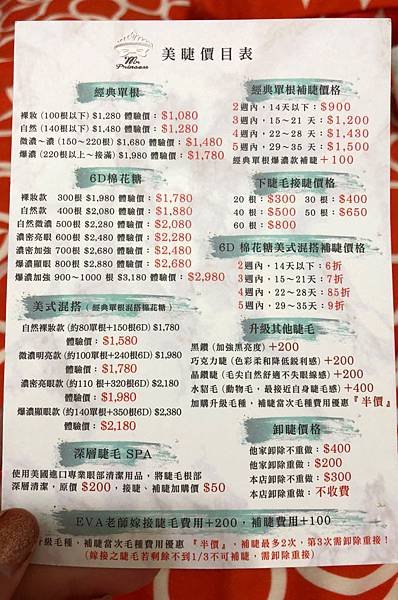 Mon Princess
美睫價目表
經典單根
裸妝 (100根以下) $1,280 體驗價：$1,080
自然 (140根以下) $1,480 體驗價：$1,280
微濃～濃 (150～220根) $1,680 體驗價：$1,480
爆濃 (220根以上～接滿) $1,980 體驗價：$1,780
6D棉花糖
裸妝款 300根 $1,980 體驗價：$1,780
自然款 400根 $2,080 體驗價：$1,880
自然微濃 500根 $2,280 體驗價：$2,080
濃密亮眼 600根 $2,480 體驗價：$2,280
濃密加強 700根 $2,680 體驗價：$2,480
爆濃顯眼 800根 $2,880 體驗價：$2,680
爆濃加強 900～1000 根 $3,180 體驗價：$2,980
美式混搭 ( 經典單根混搭棉花糖 )
自然裸妝款 (約80單根+150根6D) $1,780
體驗價：$1,580
微濃明亮款 (約100單根+240根6D) $1,980
體驗價：$1,780
濃密亮眼款 (約110 根+320根6D) $2,180
體驗價：$1,980
爆濃顯眼款 (約140單根+350根6D) $2,380
體驗價：$2,180
深層睫毛 SPA
使用美國進口專業眼部清潔用品，將睫毛根部
深層清潔，原價 $200，接睫、補睫加購價 $50
經典單根補睫價格
2週內，14天以下：$900
3週內，15～21 天：$1,200
4週內，22～28天：$1,430
5週內，29～35天：$1,500
經典單根爆濃款補睫＋100
下睫毛接睫價格
20 根：$300 30 根：$400
40 根：$500 50 根：$650
60 根：$800
6D 棉花糖美式混搭補睫價格
2週內，14天以下：6折
3週內，15～21天：7折
4週內，22～28天：85折
5週內，29～35天：9折
升級其他睫毛
黑鑽 (加強黑亮度) +200
巧克力睫 (色彩柔和降低銳利感) +200
晶鑽睫 (毛尖自然舒適不失眼線感) +200
水貂毛 (動物毛，最接近自身睫毛感) +400
加購升級毛種，補睫當次毛種費用優惠『半價』
卸睫價格
他家卸除不重做：$400
他家卸除重做：$200
本店卸除不重做：$300
本店卸除重做：不收費
EVA老師嫁接睫毛費用+200，補睫費用+100
升級毛種，補睫當次毛種費用優惠 『 半價 』。補睫最多2次，第3次需卸除重接！
(嫁接之睫毛若剩餘不到1/3不可補睫，需卸除重接)